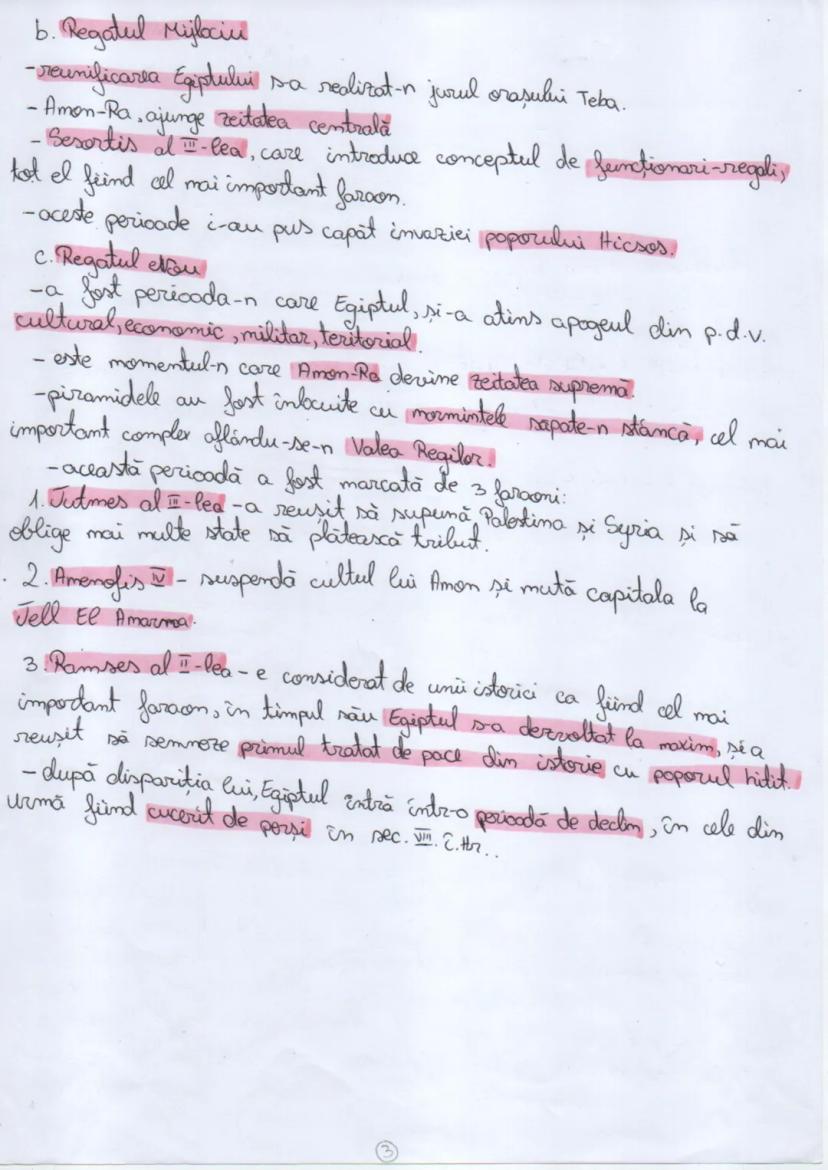 b. Regatul Mijlociu
-reunificarea Egiptului s-a realizat-n jurul orașului Teba.
- Amon-Ra, ajunge zeitatea centrală
- Sesortis al III-lea, care introduce conceptul de funcționari-regali,
tot el fiind cel mai important faraon.
-aceste perioade i-au pus capăt invaziei poporului Hicsos.
c. Regatul Nou
-a fost perioada-n care Egiptul, și-a atins apogeul din p.d.v.
cultural, economic, militar, teritorial.
- este momentul-n care Amon-Ra devine zeitatea supremă.
-piramidele au fost înlocuite cu mormintele săpate-n stâncă, cel mai
important complex aflându-se-n Valea Regilor.
-această perioadă a fost marcată de 3 faraoni:
1. Tutmes al III-lea -a reușit să supună Palestina și Syria și să
oblige mai multe state să plătească tribut.
2. Amenofis IV - suspendă cultul lui Amon și mută capitala la
Tell El Amarna.
3. Ramses al II-lea - e considerat de unii istorici ca fiind cel mai
important faraon, în timpul său Egiptul s-a dezvoltat la maxim, și a
reușit să semneze primul tratat de pace din istorie cu poporul hitit.
- după dispariția lui, Egiptul intră într-o perioadă de declin, în cele din
urmă fiind cucerit de perși în sec. VIII. î.Hr..
3